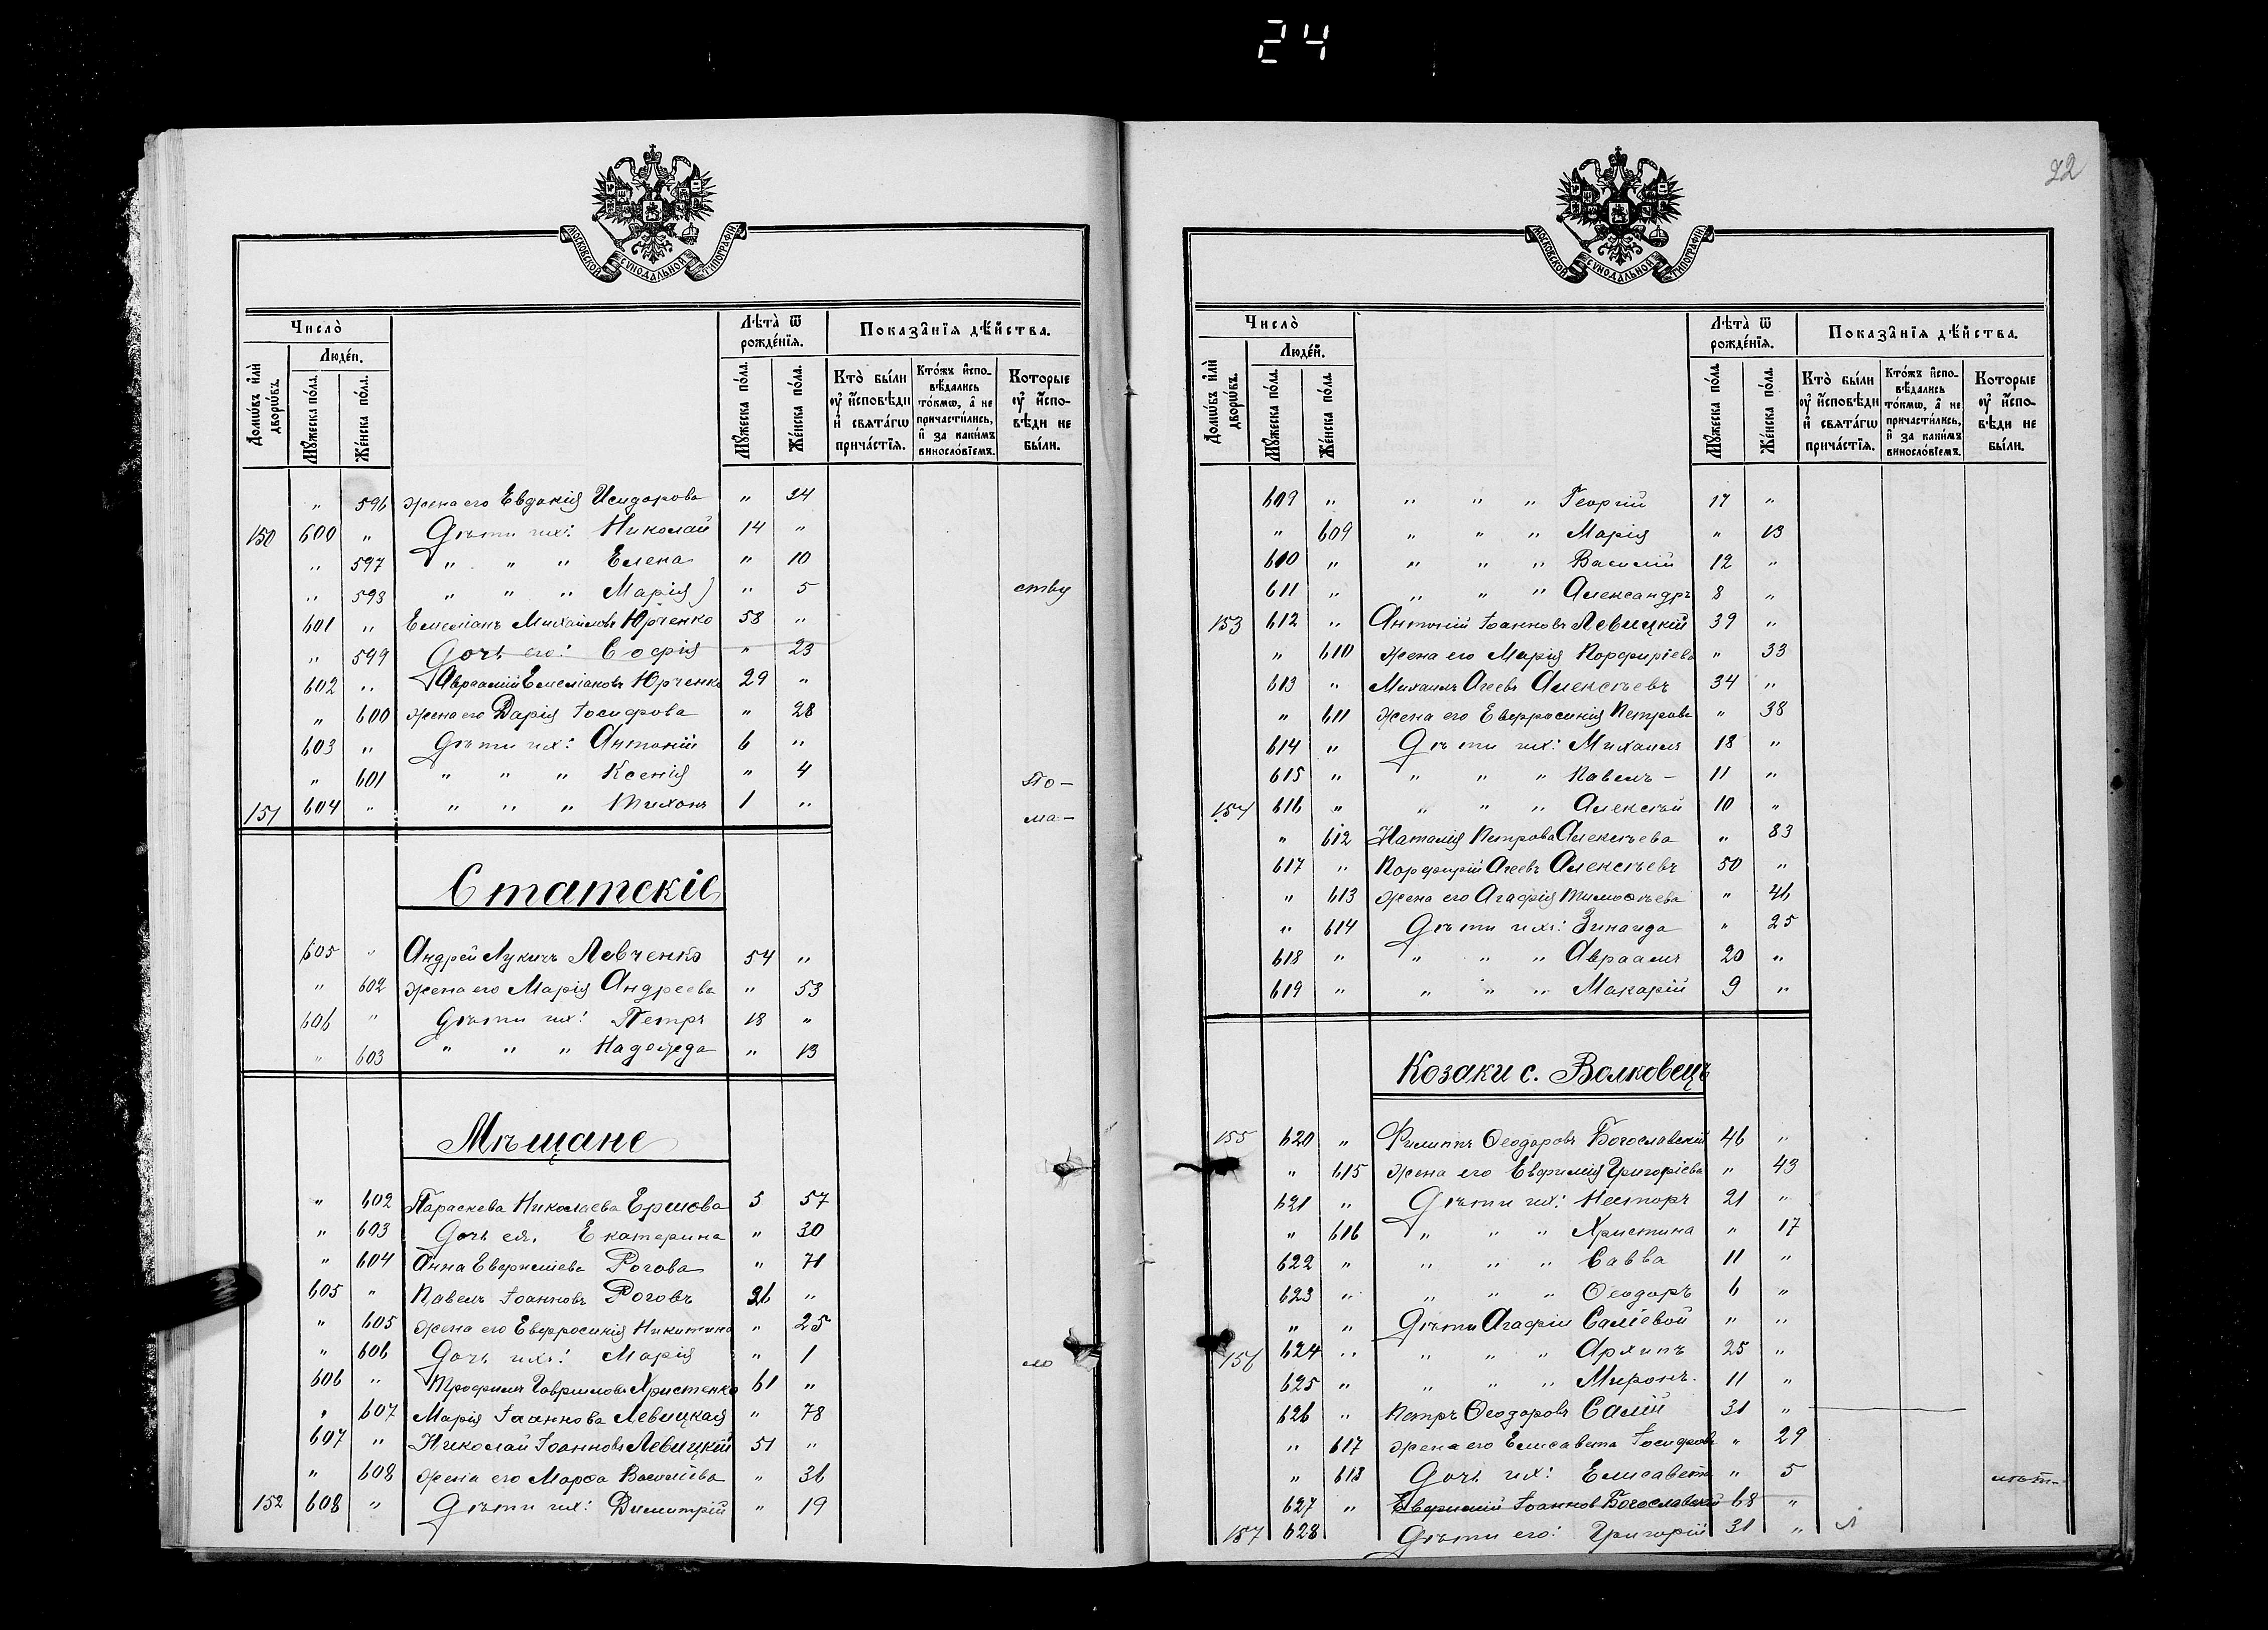 24
МОСКОВСКОЙ СѴНОДАЛЬНОЙ ТИПОГРАФІИ
Число̀
Люде́й.
Домѡ́въ и҆лѝ дворѡ́въ.
Мꙋ́жеска по́ла.
Же́нска по́ла.
Лѣ́та ѿ рожде́нїѧ.
Мꙋ́жеска по́ла.
Же́нска по́ла.
Показа̑нїѧ дѣ́йства.
Кто̀ бы́ли оу҆ и҆́сповѣди и҆ свѧта́гѡ прича́стїѧ.
Кто́жъ и҆сповѣ́дались то́кмѡ, а҆ не причасти́лись, и҆ за каки́мъ винословїемъ.
Которые оу҆ и҆́сповѣди не бы́ли.
" 596 жена его Евдокія Исидорова " 24
150 600 " Дѣти ихъ: Николай 14 "
" 597 " " " Елена " 10
" 598 " " " Марія) " 5 ству
601 " Емеліанъ Михайловъ Юрченко 58 "
" 599 Дочь его: Софія " 23
602 " Авраамій Емеліановъ Юрченко 29 "
" 600 жена его Дарія Іосифова " 28
603 " Дѣти ихъ: Антоній 6 "
" 601 " " " Ксенія " 4 По-
151 604 " " " " Тихонъ 1 " ма-
Статскіе
605 " Андрей Лукичъ Левченко 54 "
" 602 жена его Марія Андреева " 53
606 " Дѣти ихъ: Петръ 18 "
" 603 " " " Надежда " 13
Мѣщане
" 602 Параскева Николаева Ершова 5 57
" 603 Дочь ея. Екатерина " 30
" 604 Анна Евфиміева Рогова " 71
605 " Павелъ Іоанновъ Роговъ 26 "
" 605 жена его Евфросинія Никитина " 25
" 606 Дочь ихъ: Марія " 1 ло
606 " Трофимъ Гавриловъ Христенко 61 "
" 607 Марія Іоаннова Левицкая " 78
607 " Николай Іоанновъ Левицкій 51 "
" 608 жена его Марѳа Васильева " 36
152 608 " Дѣти ихъ: Димитрій " 19
22
МОСКОВСКОЙ СѴНОДАЛЬНОЙ ТИПОГРАФІИ
Число̀
Люде́й.
Домѡ́въ и҆лѝ дворѡ́въ.
Мꙋ́жеска по́ла.
Же́нска по́ла.
Лѣ́та ѿ рожде́нїѧ.
Мꙋ́жеска по́ла.
Же́нска по́ла.
Показа̑нїѧ дѣ́йства.
Кто̀ бы́ли оу҆ и҆́сповѣди и҆ свѧта́гѡ прича́стїѧ.
Кто́жъ и҆сповѣ́дались то́кмѡ, а҆ не причасти́лись, и҆ за каки́мъ винословїемъ.
Которые оу҆ и҆́сповѣди не бы́ли.
609 " " " " Георгій 17 "
" 609 " " " Марія " 13
610 " " " " Василій 12 "
611 " " " " Александръ 8 "
153 612 " Антоній Іоанновъ Левицкій 39 "
" 610 жена его Марія Порфиріева " 33
613 " Михаилъ Агеевъ Алексѣевъ 34 "
" 611 жена его Евфросинія Петрова " 38
614 " Дѣти ихъ: Михаилъ 18 "
615 " " " " Павелъ - 11 "
154 616 " " " " Алексѣй 10 "
" 612 Наталія Петрова Алексѣева " 83
617 " Порфирій Агеевъ Алексѣевъ 50 "
" 613 жена его Агафія Тимоѳѣева " 46
" 614 Дѣти ихъ: Зинаида " 25
618 " " " " Авраамъ 20 "
619 " " " " Макарій 9 "
Козаки с. Волковецъ
155 620 " Филиппъ Ѳеодоровъ Богославскій 46 "
" 615 жена его Евфимія Григоріева " 43
621 " Дѣти ихъ: Несторъ 21 "
" 616 " " " Христина " 17
622 " " " " Савва 11 "
623 " " " " Ѳеодоръ 6 "
" " Дѣти Агафіи Саліевой " "
156 624 " " " " Архипъ 25 "
625 " " " " Миронъ. 11 "
626 " Петръ Ѳеодоровъ Салій 31 "
" 617 жена его Елисавета Іосифова " 29
" 618 Дочь ихъ: Елисавета " 5
627 " Евфимій Іоаннов Богославскій 68 "
157 628 Дѣти его: Григорій 31 "